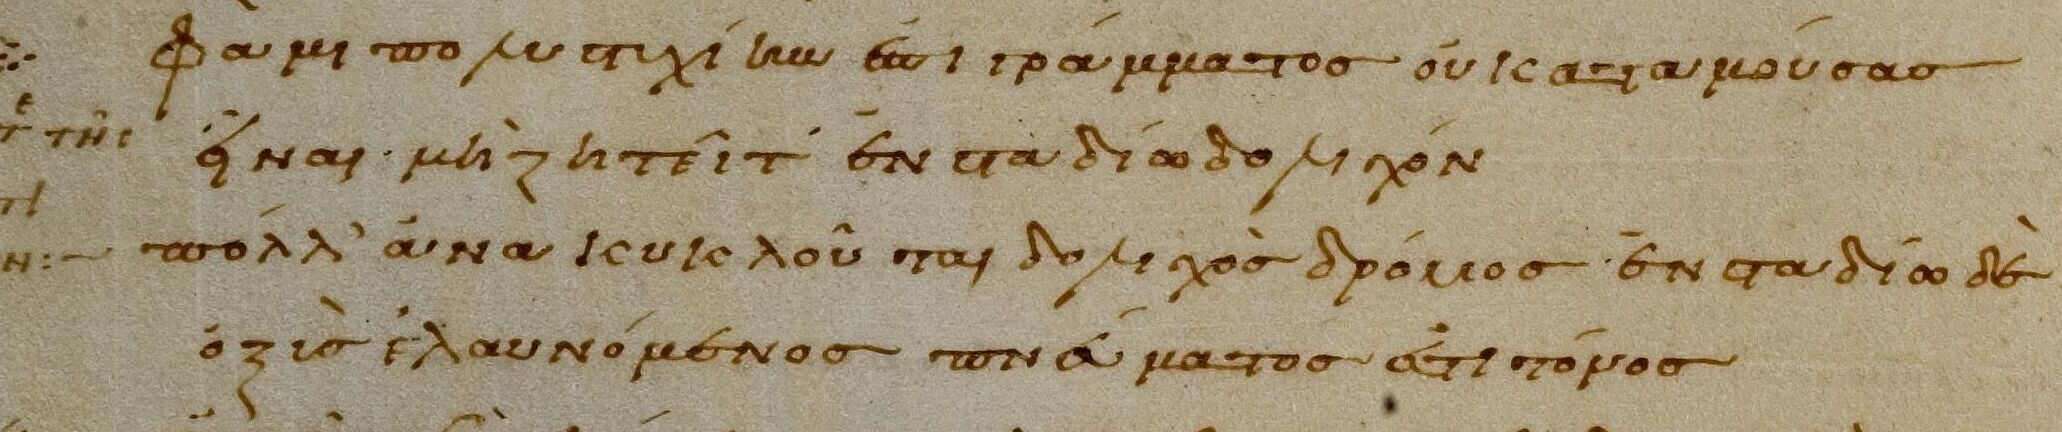 φαμι πολυστιχίην ἐπιγράμματος οὐ κατα μούσας
εἶναι· μὴ ζητεῖτ' ἐν σταδίω δολιχόν
πόλλ' ἀνακυκλοῦται δολιχὸς δρόμος· ἐν σταδίω δὲ
ὀξὺς ἐλαυνόμενος πνέυματος ἐστι τόνος